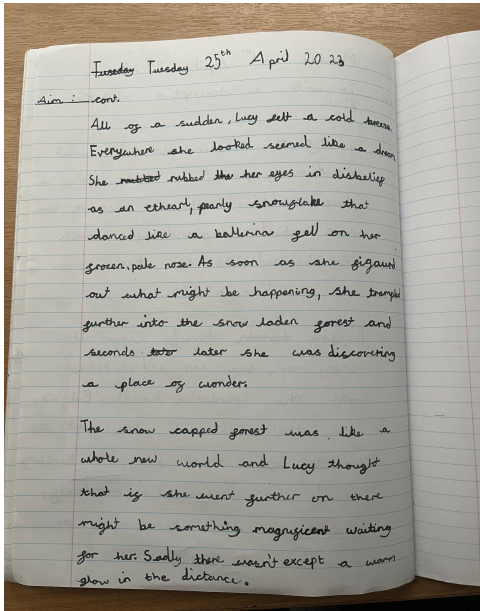 Tuesday Tuesday 25th April 2023
Aim: cont.
All of a sudden, Lucy felt a cold breeze.
Everywhere she looked seemed like a dream
She rubbed rubbed the her eyes in disbelief
as an ethearl, pearly snowflake that
danced like a ballerina fell on her
frozen, pale nose. As soon as she figaurd
out what might be happening, she trampled
further into the snow laden forest and
seconds later she was discovering
a place of wonder.
The snow capped forest was like a
whole new world and Lucy thought
that if she went further on there
might be something magnificent waiting
for her. Sadly there wasn't except a warm
glow in the dictance.